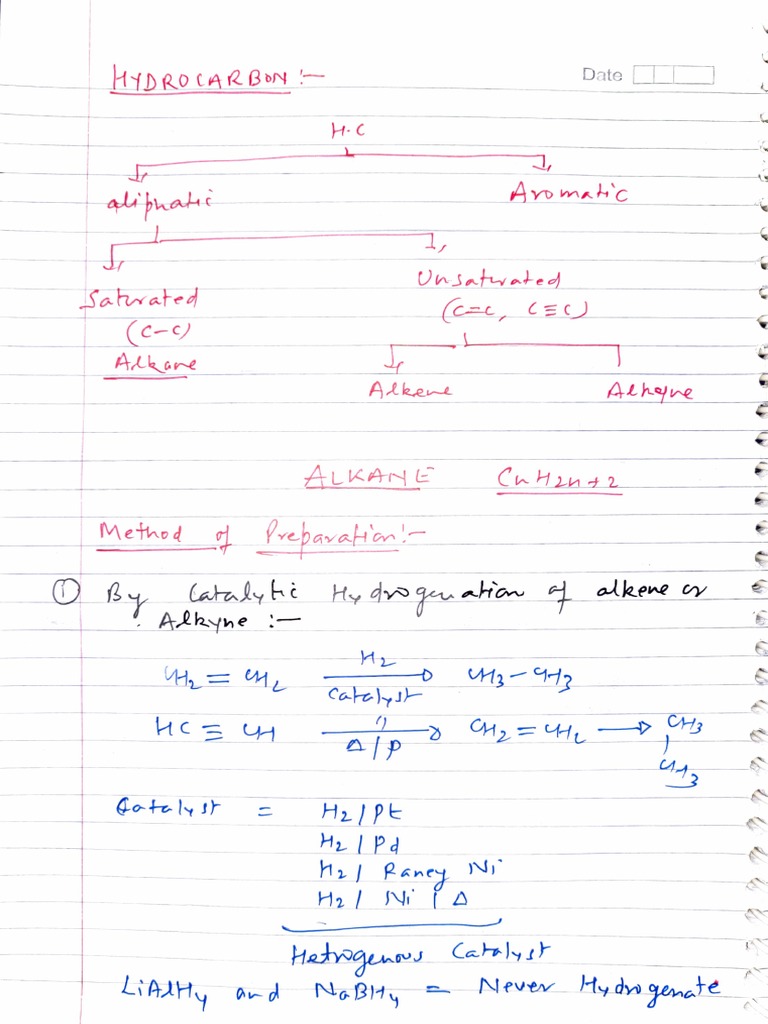 HYDROCARBON :-
Date
H.C
aliphatic
Aromatic
Saturated
(C-C)
Alkane
Unsaturated
(C=C, C≡C)
Alkene
Alkyne
ALKANE CnH2n+2
Method of Preparation:-
① By Catalytic Hydrogenation of alkene or
Alkyne :-
CH2 = CH2 H2 Catalyst → CH3 - CH3
HC ≡ CH '' Δ/P → CH2 = CH2 → CH3 | CH3
Catalyst = H2 / Pt
H2 / Pd
H2 / Raney Ni
H2 / Ni / Δ
Hetrogenous Catalyst
LiAlH4 and NaBH4 = Never Hydrogenate